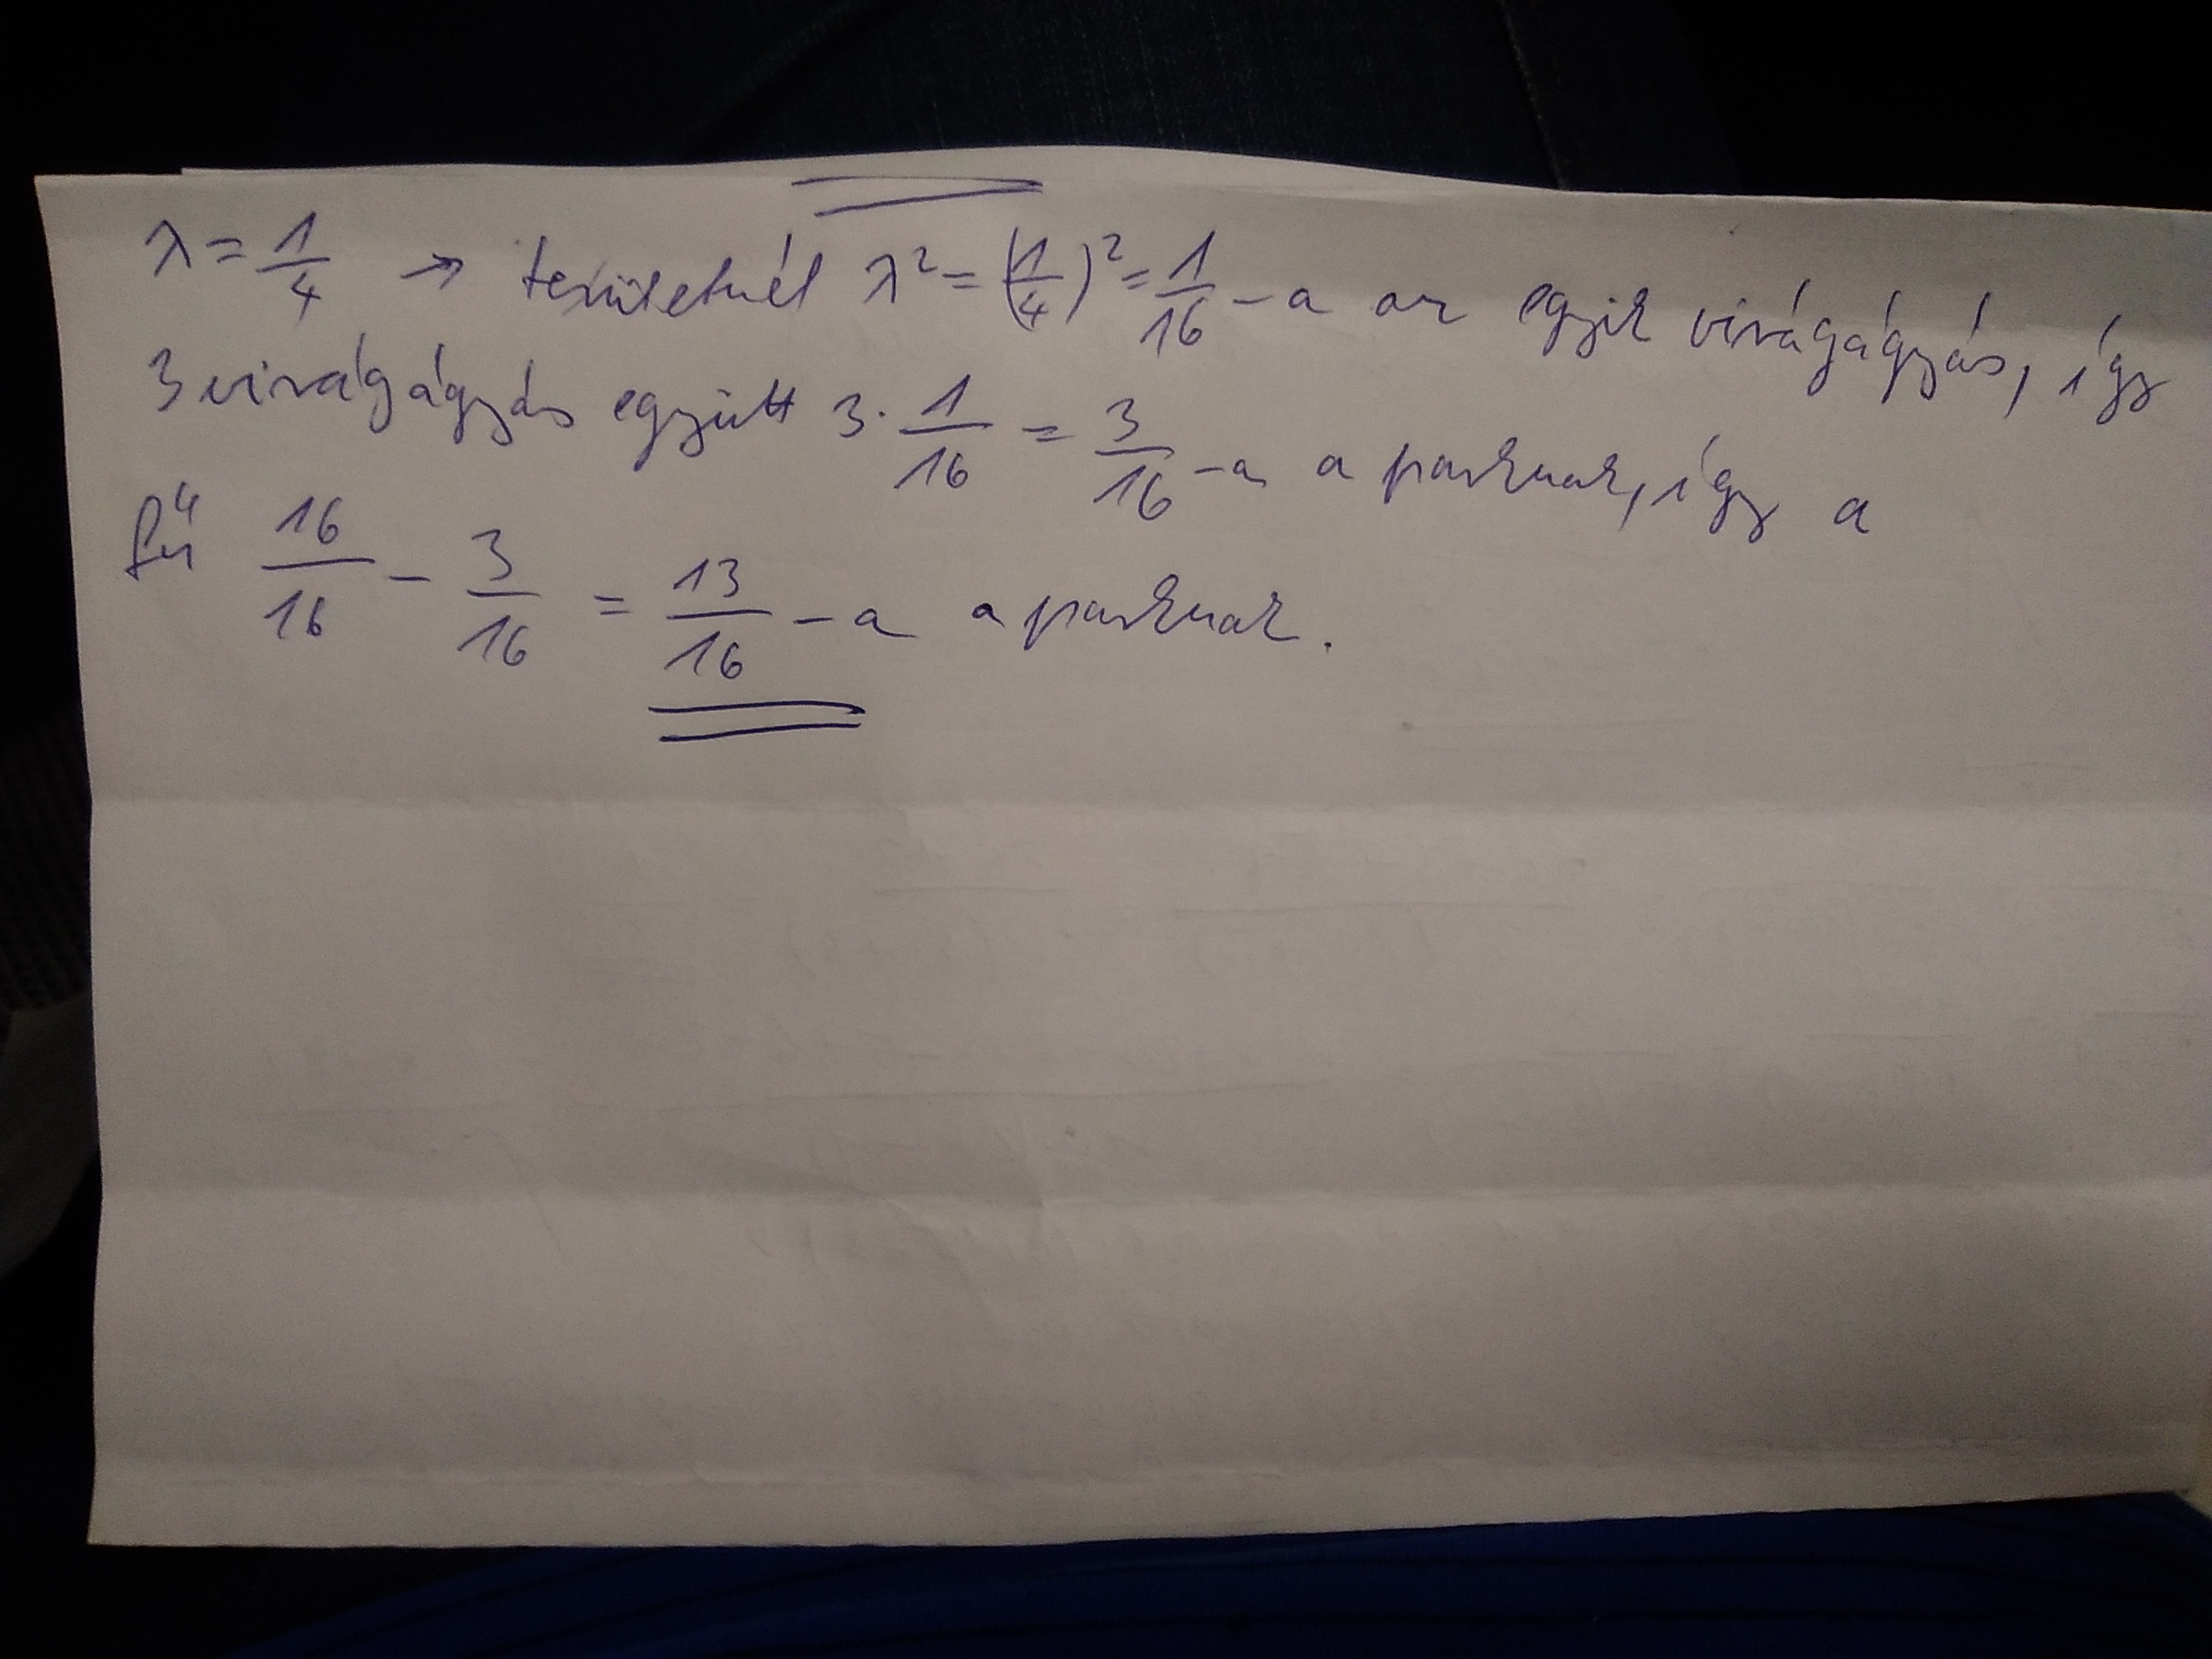 λ = 1/4 → területnél λ² = (1/4)² = 1/16 - a az egyik virágágyás, így
3 virágágyás együtt 3 · 1/16 = 3/16 - a a parknak, így a
fű 16/16 - 3/16 = 13/16 - a a parknak.